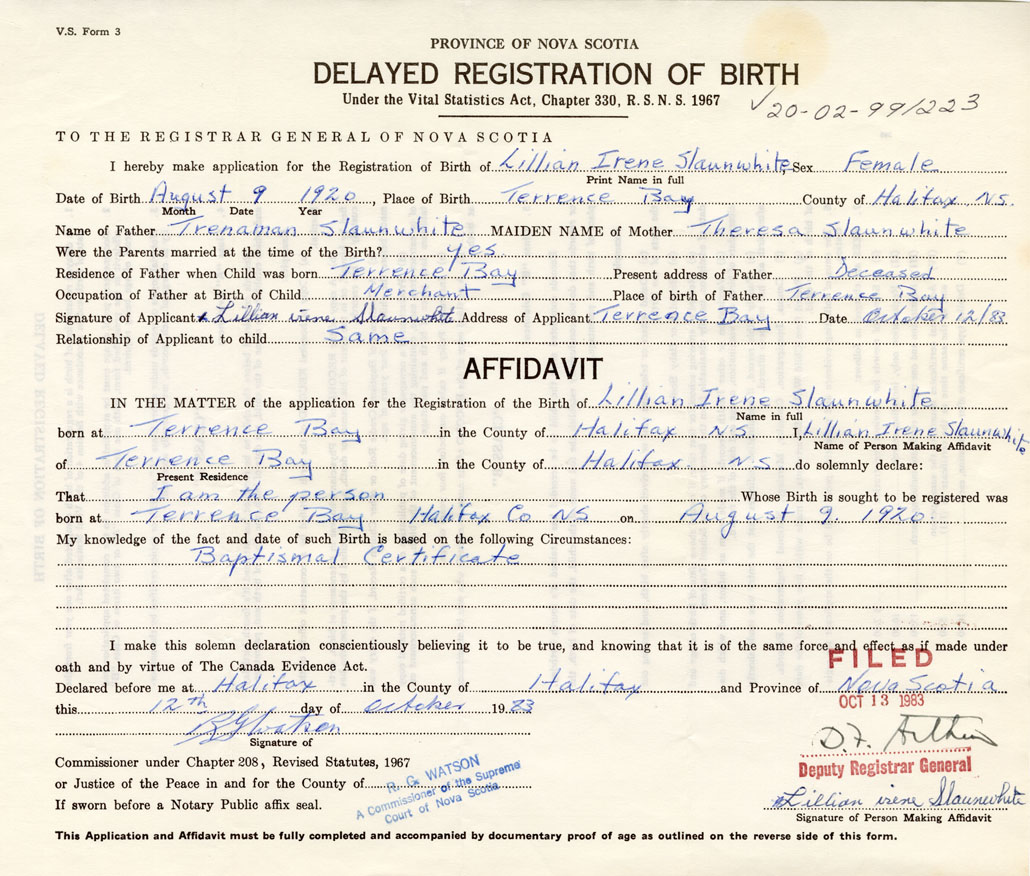 V.S. Form 3
PROVINCE OF NOVA SCOTIA
DELAYED REGISTRATION OF BIRTH
Under the Vital Statistics Act, Chapter 330, R. S. N. S. 1967
✓20-02-99/223
TO THE REGISTRAR GENERAL OF NOVA SCOTIA
I hereby make application for the Registration of Birth of Lillian Irene Slaunwhite, Sex Female
Print Name in full
Date of Birth August 9 1920, Place of Birth Terrence Bay County of Halifax N.S.
Month Date Year
Name of Father Trenaman Slaunwhite MAIDEN NAME of Mother Theresa Slaunwhite
Were the Parents married at the time of the Birth? yes
Residence of Father when Child was born Terrence Bay Present address of Father Deceased
Occupation of Father at Birth of Child Merchant Place of birth of Father Terrence Bay
Signature of Applicant x Lillian irene Slaunwhite Address of Applicant Terrence Bay Date October 12/83
Relationship of Applicant to child Same
AFFIDAVIT
IN THE MATTER of the application for the Registration of the Birth of Lillian Irene Slaunwhite
Name in full
born at Terrence Bay in the County of Halifax N.S. I, Lillian Irene Slaunwhite
Name of Person Making Affidavit
of Terrence Bay in the County of Halifax. N.S. do solemnly declare:
Present Residence
That I am the person Whose Birth is sought to be registered was
born at Terrence Bay Halifax Co NS on August 9. 1920.
My knowledge of the fact and date of such Birth is based on the following Circumstances:
Baptismal Certificate
I make this solemn declaration conscientiously believing it to be true, and knowing that it is of the same force and effect as if made under
oath and by virtue of The Canada Evidence Act.
FILED
Declared before me at Halifax in the County of Halifax and Province of Nova Scotia
OCT 13 1983
this 12th day of October 1983
R G Watson
Signature of
D. F. Arthur
Commissioner under Chapter 208, Revised Statutes, 1967
Deputy Registrar General
or Justice of the Peace in and for the County of
R. G. WATSON
A Commissioner of the Supreme
Court of Nova Scotia
If sworn before a Notary Public affix seal.
x Lillian irene Slaunwhite
Signature of Person Making Affidavit
This Application and Affidavit must be fully completed and accompanied by documentary proof of age as outlined on the reverse side of this form.